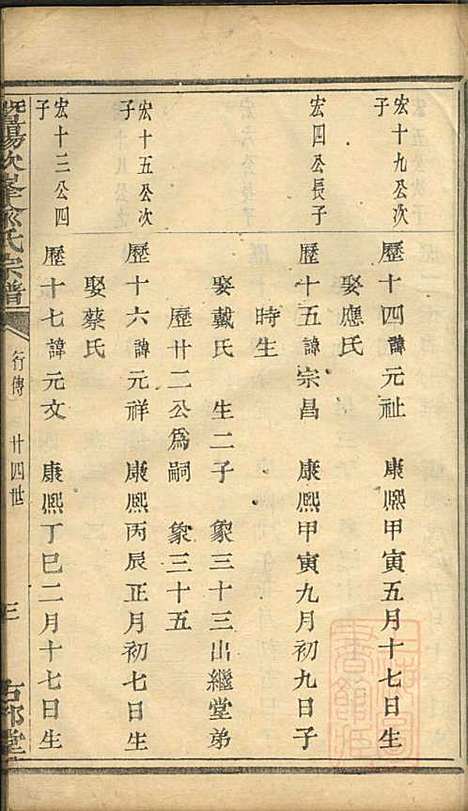 宏十九公次子
歷十四諱元祉　康熙甲寅五月十七日生
娶應氏
宏四公長子
歷十五諱宗昌　康熙甲寅九月初九日子
時生
娶戴氏　生二子　象三十三出繼堂弟
歷廿二公為嗣　象三十五
宏十五公次子
歷十六諱元祥　康熙丙辰正月初七日生
娶蔡氏
宏十三公四子
歷十七諱元文　康熙丁巳二月十七日生
暨陽次峯俞氏宗譜　行傳　廿四世　三